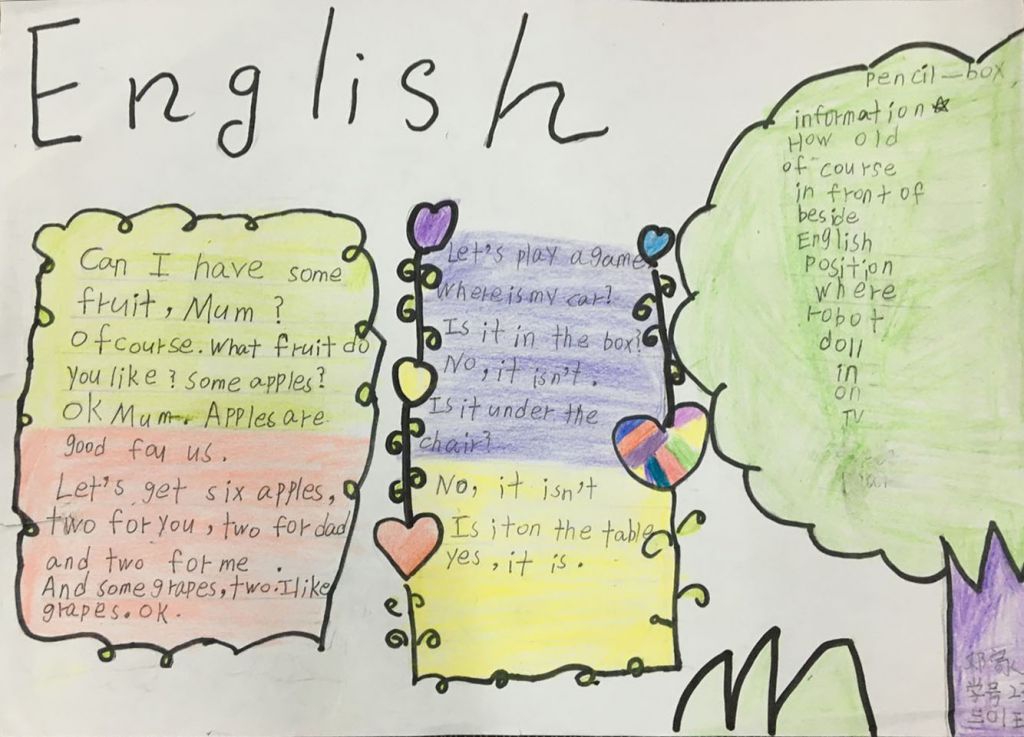 English
Can I have some
fruit, Mum ?
Of course. What fruit do
you like ? some apples?
OK Mum. Apples are
good fou us.
Let's get six apples,
two for you, two for dad
and two for me .
And some grapes, two. I like
grapes. OK.
Let's play a game
Where is my car?
Is it in the box?
No, it isn't.
Is it under the
chair?
No, it isn't
Is it on the table
yes, it is.
pencil-box
information
How old
of course
in front of
beside
English
position
where
robot
doll
in
on
TV
学号 2